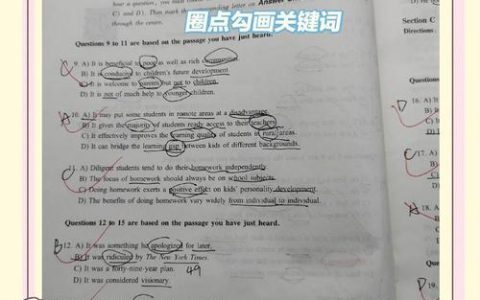 hour a question, you
C) and D). Then mark the
through the centre.
圈点勾画关键词
Section C
Directions:
Questions 9 to 11 are based on the passage you have just heard.
C 9. A) It is beneficial to poor as well as rich
B) It is conducive to children's future development.
C) It is welcome to parents but not to children.
D) It is not of much help to younger children.
A 10. A) It may put some students in remote areas at a disadvantage.
B) It gives the majority of students ready access to their teachers.
C) It effectively improves the learning quality of students in rural areas.
D) It can bridge the learning gap between kids of different backgrounds.
11. A) Diligent students tend to do their homework independently.
B) The focus of homework should always be on school subjects.
C) Doing homework exerts a positive effect on kids' personality development.
D) The benefits of doing homework vary widely from individual to individual.
Questions 12 to 15 are based on the passage you have just heard.
B 12. A) It was something he apologized for later.
B) It was ridiculed by The New York Times.
C) It was a forty-nine-year plan. 49
D) It was considered visionary.
Questions
D 16. A) It
B)
C)
D) I
17. A)
B)
C)
D)
A 18. A)
B)
C)
D)
19.